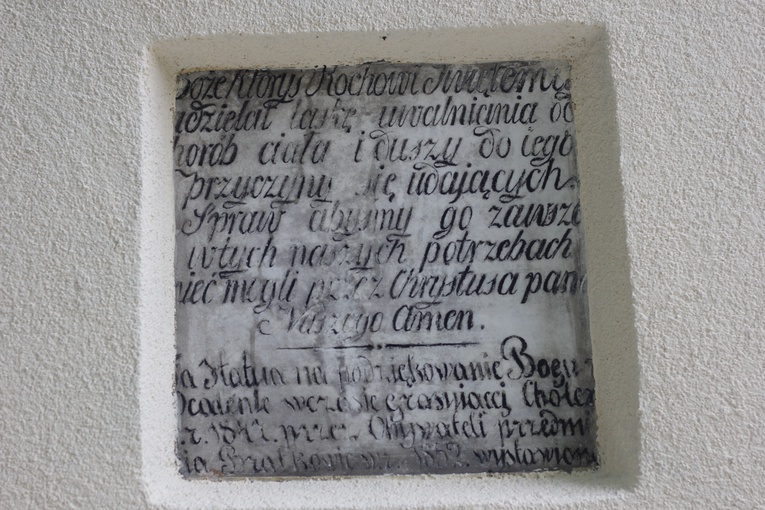 Boże Któryś Rochowi Świętemu
udzielał łaskę uwalniania od
horób ciała i duszy do iego
przyczyny się udających.
Spraw abyśmy go zawsze
w tych naszych potrzebach
mieć mogli przez Chrystusa pana
Naszego Amen.
Ta Statua na podziękowanie Bogu
Ocalenie w czasie grasującej
r. przez Obywateli przedm
1852. wystawion